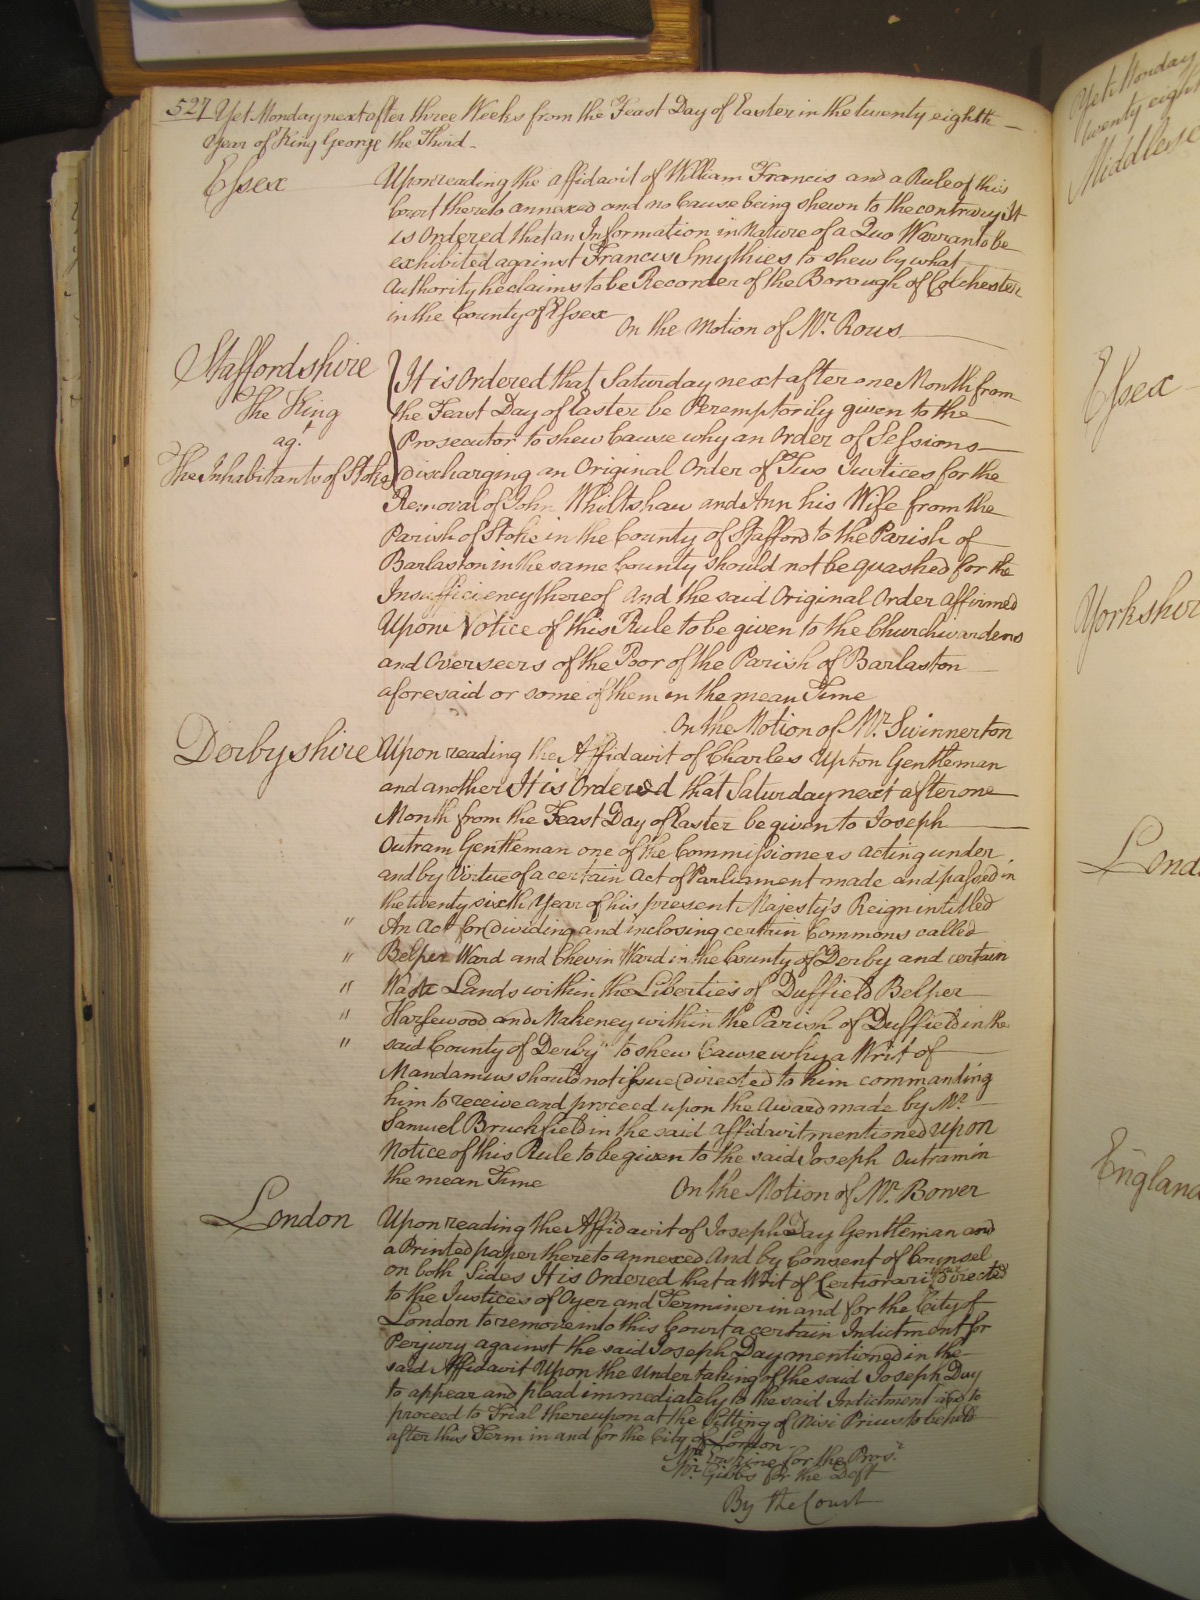 527 Yet Monday next after three Weeks from the Feast Day of Easter in the twenty eighth
Year of King George the Third
Essex
Upon reading the affidavit of William Francis and a Rule of this
Court thereto annexed and no Cause being shewn to the contrary It
is Ordered that an Information in Nature of a Quo Warranto be
exhibited against Francis Smythies to shew by what
Authority he claims to be Recorder of the Borough of Colchester
in the County of Essex
On the Motion of Mr. Rous
Staffordshire
The King
agt
The Inhabitants of Stoke
It is Ordered that Saturday next after one Month from
the Feast Day of Easter be Peremptorily given to the
Prosecutor to shew Cause why an Order of Sessions
discharging an Original Order of Two Justices for the
Removal of John Whiltshaw and Ann his Wife from the
Parish of Stoke in the County of Stafford to the Parish of
Barlaston in the same County should not be quashed for the
Insufficiency thereof And the said Original Order affirmed
Upon Notice of this Rule to be given to the Churchwardens
and Overseers of the Poor of the Parish of Barlaston
aforesaid or some of them in the mean Time
On the Motion of Mr. Swinnerton
Derbyshire
Upon reading the Affidavit of Charles Upton Gentleman
and another It is Ordered that Saturday next after one
Month from the Feast Day of Easter be given to Joseph
Outram Gentleman one of the Commissioners acting under
and by Virtue of a certain Act of Parliament made and passed in
the twenty sixth Year of his present Majesty's Reign intitled
" An Act for dividing and inclosing certain Commons called
" Belper Ward and Chevin Ward in the County of Derby and certain
" Waste Lands within the Liberties of Duffield Belper
" Hazlewood and Makeney within the Parish of Duffield in the
" said County of Derby" to shew Cause why a Writ of
Mandamus should not issue directed to him commanding
him to receive and proceed upon the Award made by Mr.
Samuel Bruckfield in the said affidavit mentioned upon
Notice of this Rule to be given to the said Joseph Outram in
the mean Time
On the Motion of Mr. Bower
London
Upon reading the Affidavit of Joseph Day Gentleman and
a Printed paper thereto annexed And by Consent of Counsel
on both Sides It is Ordered that a Writ of Certiorari issue directed
to the Justices of Oyer and Terminer in and for the City of
London to remove into this Court a certain Indictment for
Perjury against the said Joseph Day mentioned in the
said Affidavit Upon the Undertaking of the said Joseph Day
to appear and plead immediately to the said Indictment and to
proceed to Trial thereupon at the Sitting of Nisi Prius to be held
after this Term in and for the City of London
Mr. Erskine for the Prosr.
Mr. Gibbs for the Deft
By the Court
Yet Monday
twenty eigh
Middlese
Essex
Yorkshir
Lond
England